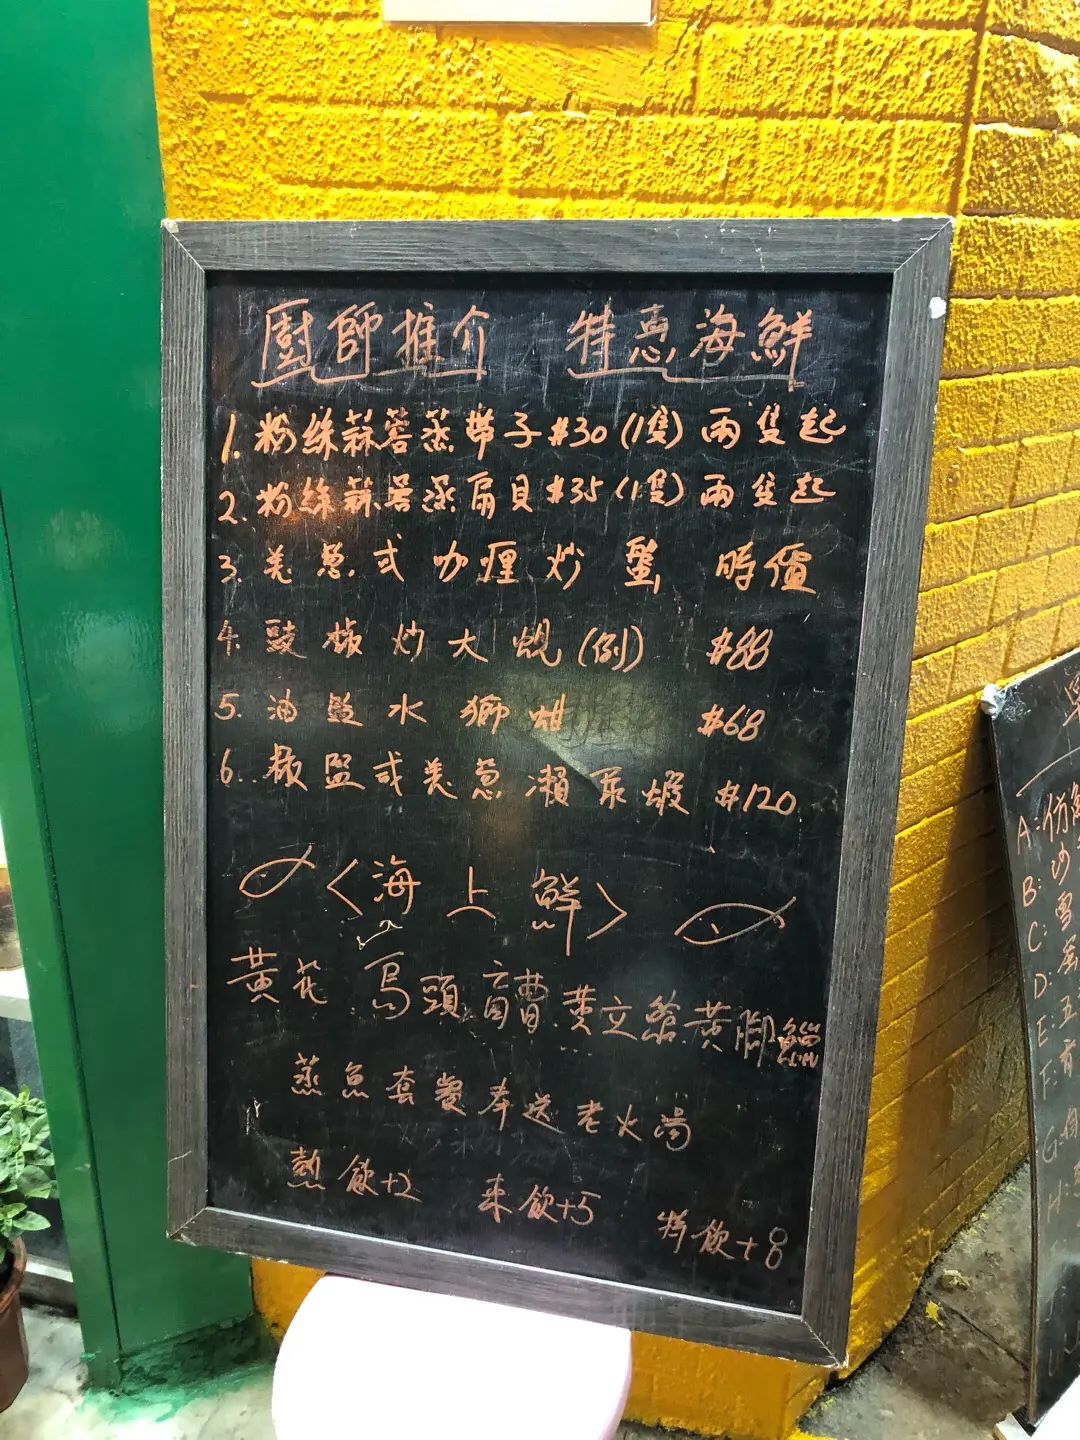 廚師推介 特惠海鮮
1. 粉絲蒜蓉蒸帶子 #30 (1隻) 兩隻起
2. 粉絲蒜蓉蒸扇貝 #35 (1隻) 兩隻起
3. 羌葱或咖喱炒蟹 時價
4. 豉椒炒大蜆 (例) #88
5. 油鹽水獅蚶 #68
6. 椒盐或羌葱瀨尿蝦 #120
〈海上鮮〉
黃花 馬頭 黃立鯧 黃腳
蒸魚套餐奉送老火湯
熱飲+2 来飲+5 特飲+8
A:
B: 沙
C: 雪
D:
E: 五
F: 有
G:
H: